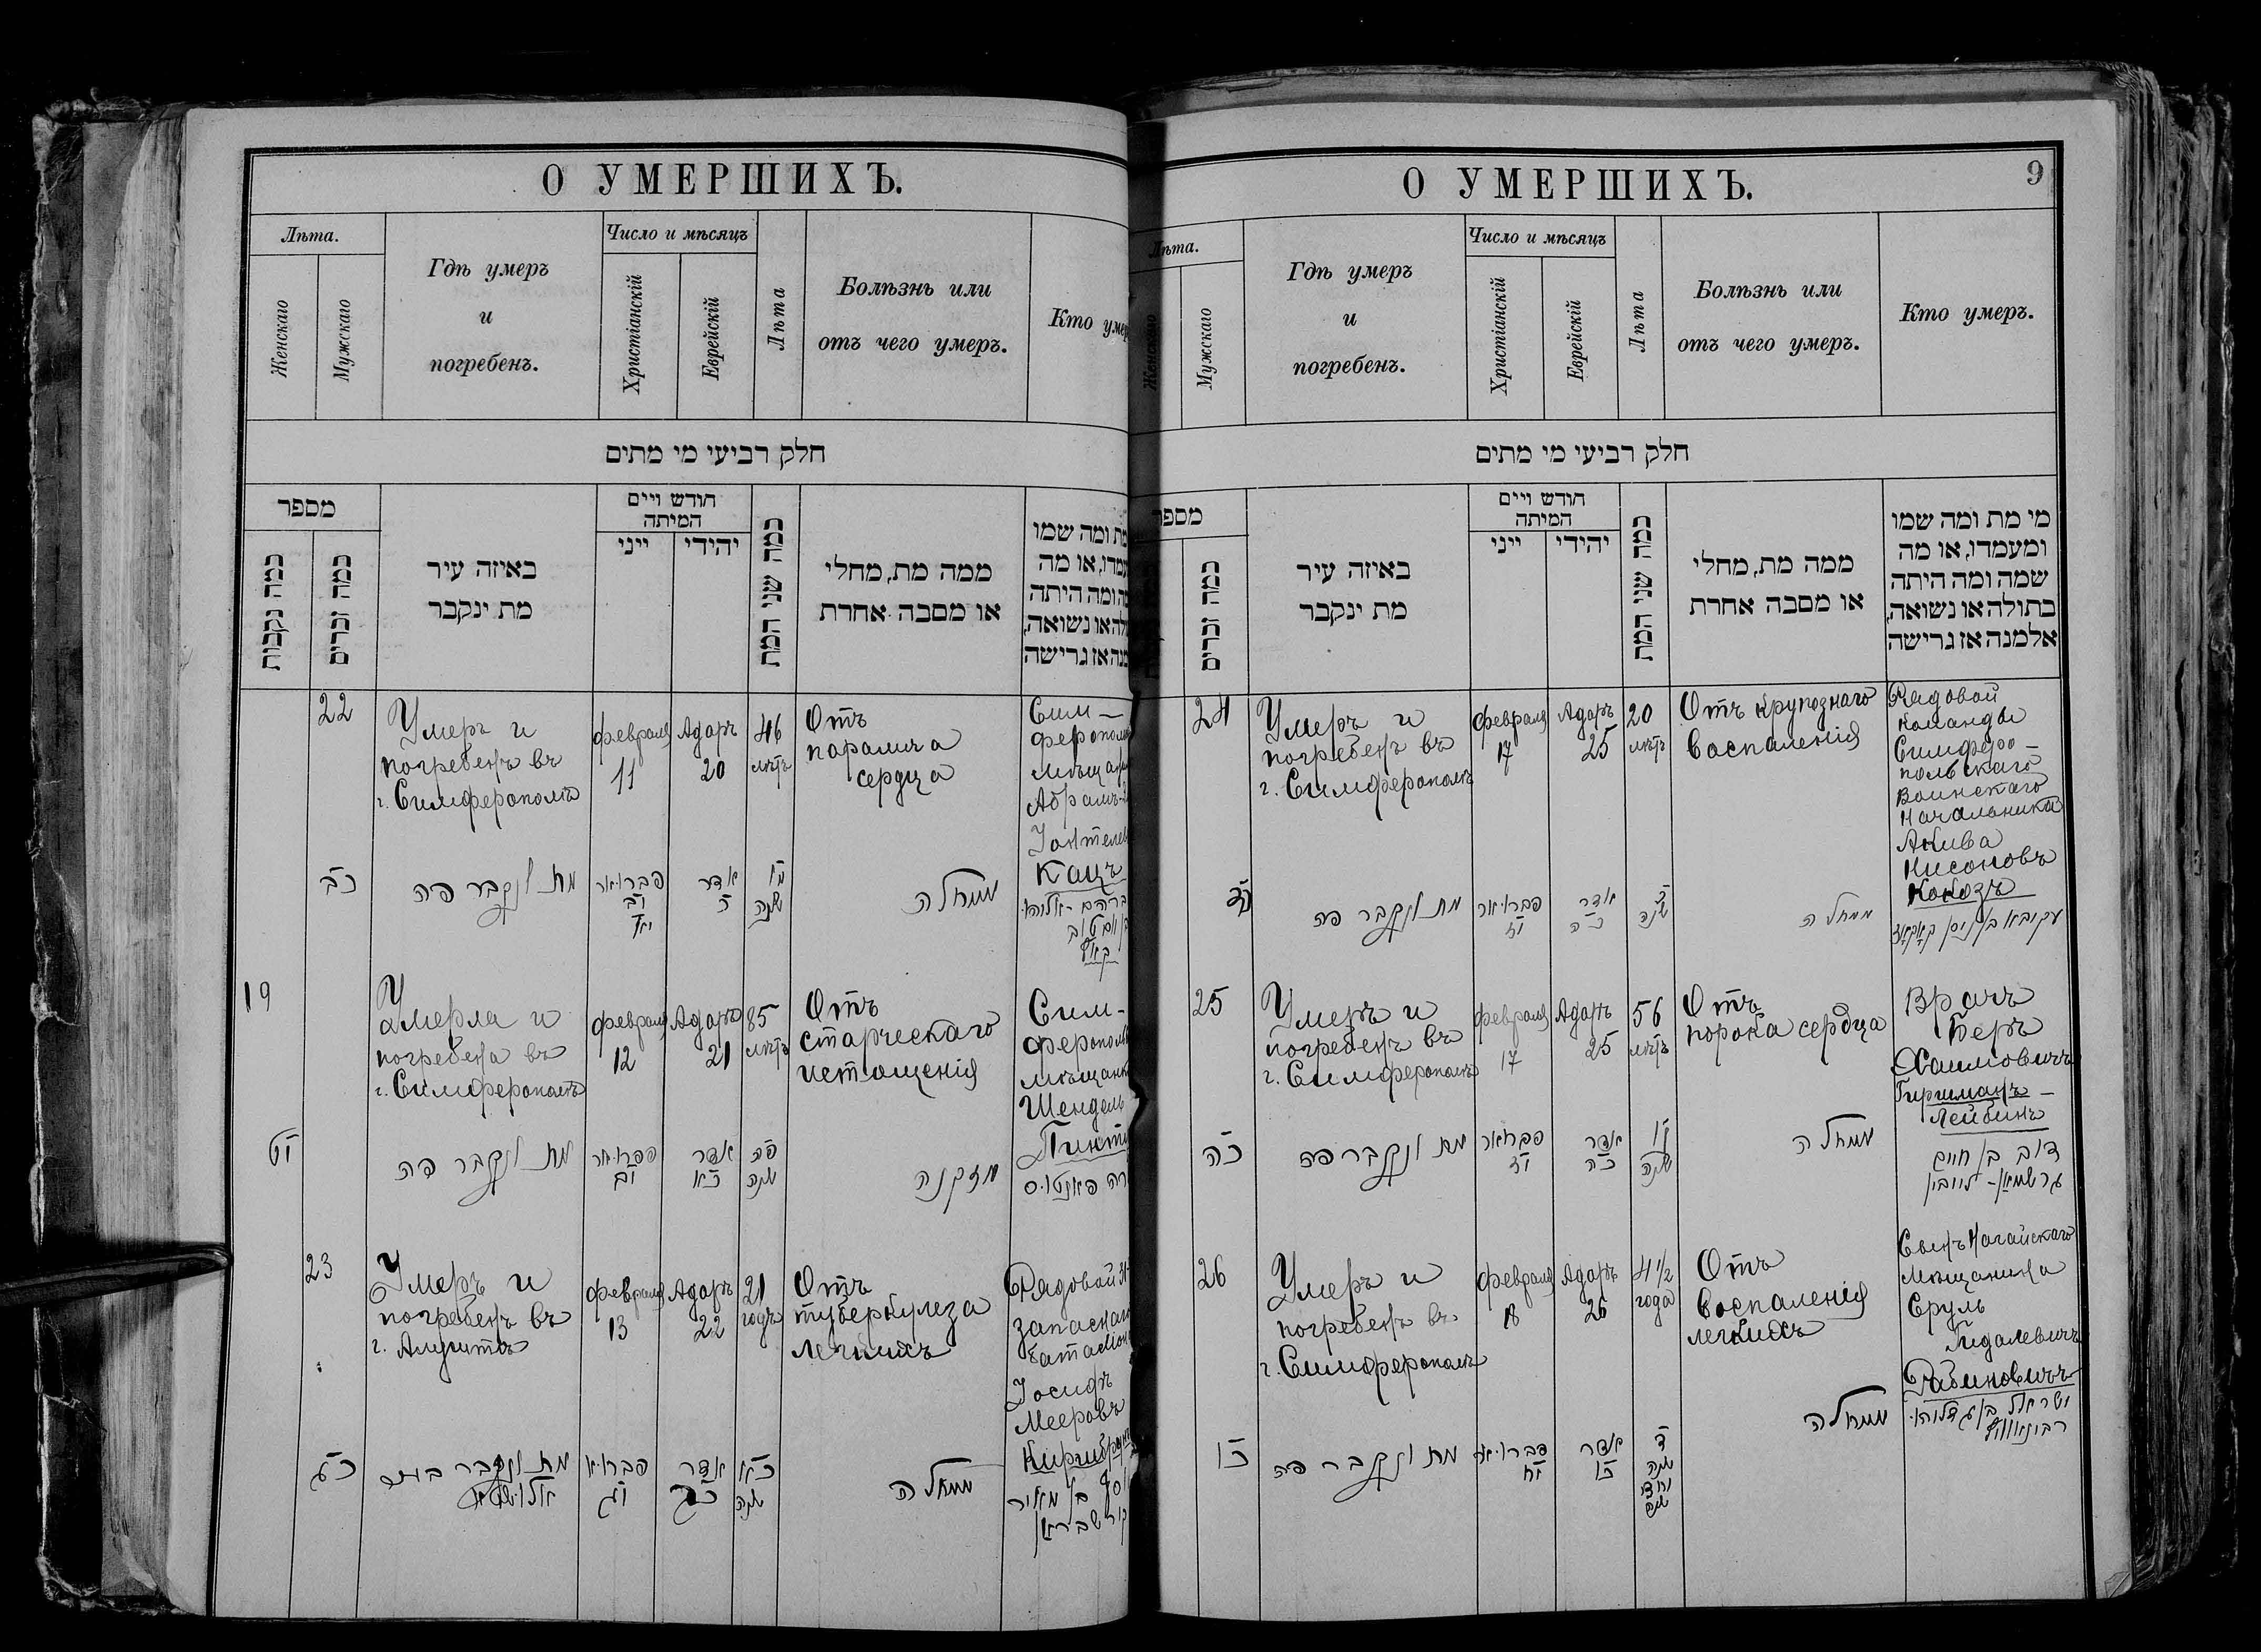 О УМЕРШИХЪ.
Лѣта.
Женскаго
Мужскаго
Гдѣ умеръ
и
погребенъ.
Число и мѣсяцъ
Христіанскій
Еврейскій
Лѣта
Болѣзнь или
отъ чего умеръ.
Кто умер
חלק רביעי מי מתים
מספר
כמה נקבות
כמה זכרים
באיזה עיר
מת ינקבר
חודש ויום
המיתה
ייני
יהודי
כמה שני המת
ממה מת, מחלי
או מסבה אחרת
מת ומה שמו
או מה
ומה היתה
או נשואה,
אז גרישה
22
Умеръ и
погребенъ въ
г. Симферополѣ
Февраля
11
Адаръ
20
46
лѣтъ
Отъ
паралича
сердца
Сим-
ферополь
мѣщан
Абрамъ-
Кацъ
כב
מת ונקבר פה
פברואר
אדר
כ
מו
שנה
ממחלה
19
Умерла и
погребена въ
г. Симферополѣ
Февраля
12
Адаръ
21
85
лѣтъ
Отъ
старческаго
истощенія
Сим-
ферополь
мѣщанк
Шендель
יט
מת ונקבר פה
פברואר
יב
אדר
כא
פה
שנה
מזקנה
23
Умеръ и
погребенъ въ
г. Алуштѣ
Февраля
13
Адаръ
22
21
годъ
Отъ
туберкулеза
легкихъ
Рядовой
запаснаго
баталіон
Іосифъ
Мееровъ
כג
מת ונקבר
פברואר
יג
אדר
כב
כא
שנה
ממחלה
בן מאיר
О УМЕРШИХЪ.
9
Лѣта.
Женскаго
Мужскаго
Гдѣ умеръ
и
погребенъ.
Число и мѣсяцъ
Христіанскій
Еврейскій
Лѣта
Болѣзнь или
отъ чего умеръ.
Кто умеръ.
חלק רביעי מי מתים
מספר
כמה זכרים
באיזה עיר
מת ינקבר
חודש ויום
המיתה
ייני
יהודי
כמה שני המת
ממה מת, מחלי
או מסבה אחרת
מי מת ומה שמו
ומעמדו, או מה
שמה ומה היתה
בתולה או נשואה,
אלמנה אז גרישה
24
Умеръ и
погребенъ въ
г. Симферополѣ
Февраля
17
Адаръ
25
20
лѣтъ
Отъ крупознаго
воспаленія
Рядовой
команды
Симферо-
польскаго
Воинскаго
Начальника
Акива
Нисоновъ
כד
מת ונקבר פה
פברואר
יז
אדר
כה
כ
שנה
ממחלה
עקיבא בן ניסן
25
Умеръ и
погребенъ въ
г. Симферополѣ
Февраля
17
Адаръ
25
56
лѣтъ
Отъ
порока сердца
Врачъ
Беръ
Хаимовичъ
Гиршманъ-
Лейбинъ
כה
מת ונקבר פה
פברואר
יז
אדר
כה
נו
שנה
ממחלה
דוב בן חיים
26
Умеръ и
погребенъ въ
г. Симферополѣ
Февраля
18
Адаръ
26
4 1/2
года
Отъ
воспаленія
легкихъ
Сынъ Ногайскаго
мѣщанина
Сруль
Гидалевичъ
Рабиновичъ
כו
מת ונקבר פה
פברואר
יח
אדר
כו
ד
שנה
וחצי
שנה
ממחלה
ישראל בן גדליהו